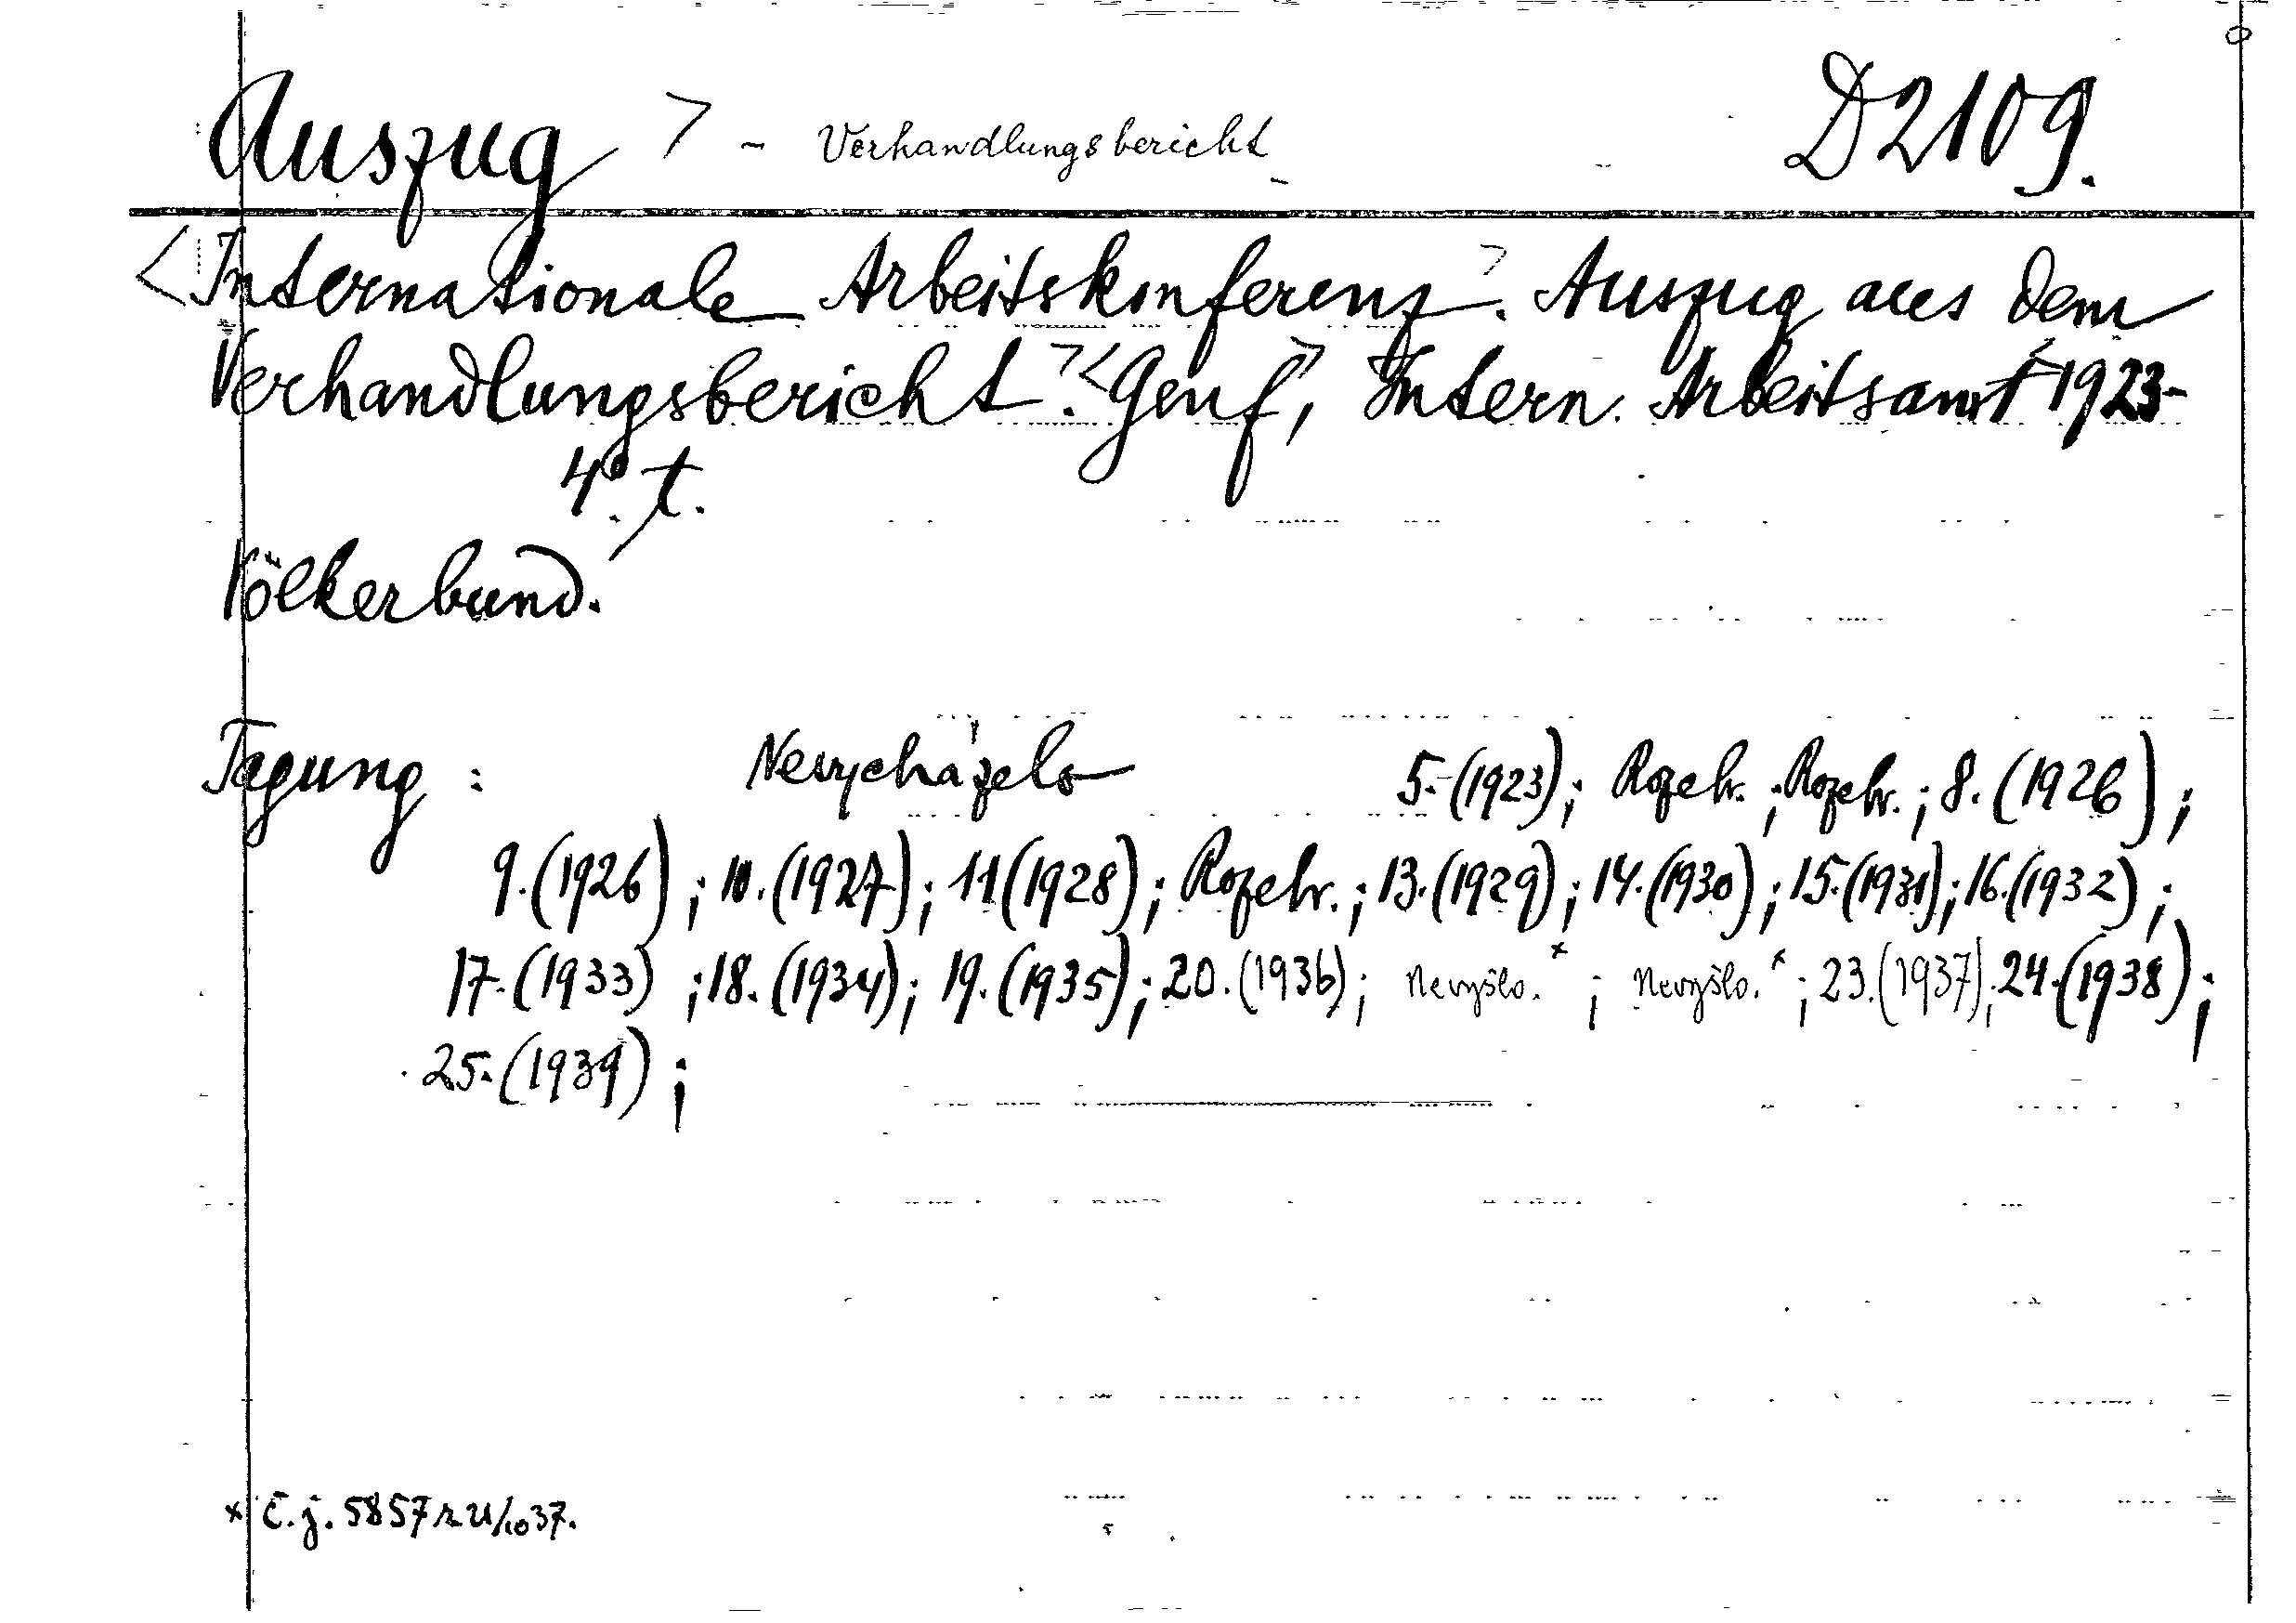 Auszug > - Verhandlungsbericht D 2109.
<Internationale Arbeitskonferenz>. Auszug aus dem
Verhandlungsbericht.><Genf>, Intern. Arbeitsamt 1923-
4° t.
Völkerbund.
Tagung : Nevycházelo 5.(1923); Rozebr. ; Rozebr. ; 8.(1926);
9.(1926); 10.(1927); 11(1928); Rozebr. ; 13.(1929); 14.(1930); 15.(1931); 16.(1932);
17.(1933) ; 18.(1934); 19.(1935); 20.(1936); Nevyšlo.ˣ ; Nevyšlo.ˣ ; 23.(1937); 24.(1938);
25.(1939) ;
x Č.j. 5857 z 21/10 37.